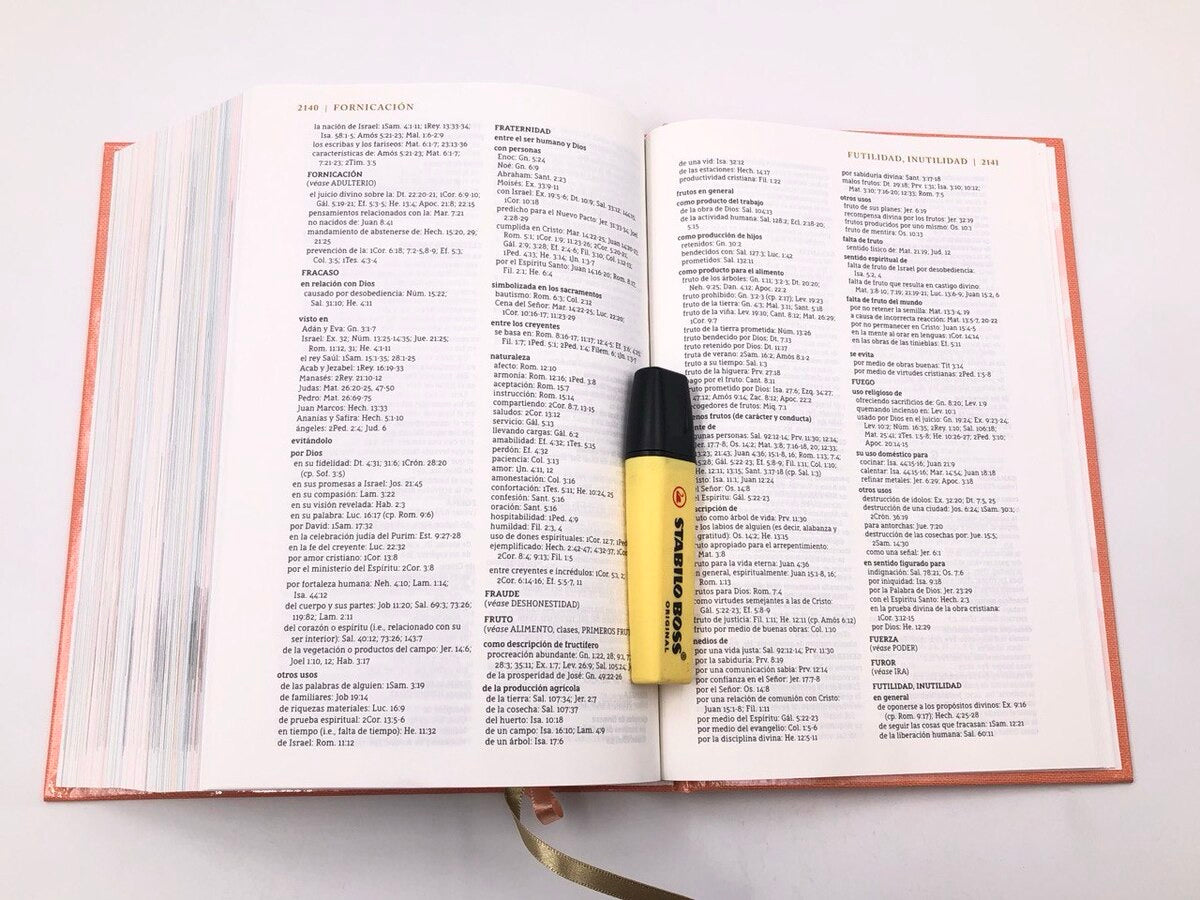 2140 | FORNICACIÓN
la nación de Israel: 1Sam. 4:1-11; 1Rey. 13:33-34;
Isa. 58:1-5; Amós 5:21-23; Mal. 1:6-2:9
los escribas y los fariseos: Mat. 6:1-7; 23:13-36
características de: Amós 5:21-23; Mat. 6:1-7;
7:21-23; 2Tim. 3:5
FORNICACIÓN
(véase ADULTERIO)
el juicio divino sobre la: Dt. 22:20-21, 1Cor. 6:9-10;
Gál. 5:19-21; Ef. 5:3-5; He. 13:4; Apoc. 21:8, 22:15
pensamientos relacionados con la: Mar. 7:21
no nacidos de: Juan 8:41
mandamiento de abstenerse de: Hech. 15:20, 29;
21:25
prevención de la: 1Cor. 6:18; 7:2-5,8-9; Ef. 5:3;
Col. 3:5; 1Tes. 4:3-4
FRACASO
en relación con Dios
causado por desobediencia: Núm. 15:22,
Sal. 31:10; He. 4:11
visto en
Adán y Eva: Gn. 3:1-7
Israel: Ex. 32; Núm. 13:25-14:35; Jue. 21:25;
Rom. 11:12, 31; He. 4:1-11
el rey Saúl: 1Sam. 15:1-35; 28:1-25
Acab y Jezabel: 1Rey. 16:19-33
Manasés: 2Rey. 21:10-12
Judas: Mat. 26:20-25, 47-50
Pedro: Mat. 26:69-75
Juan Marcos: Hech. 13:33
Ananías y Safira: Hech. 5:1-10
ángeles: 2Ped. 2:4; Jud. 6
evitándolo
por Dios
en su fidelidad: Dt. 4:31; 31:6; 1Crón. 28:20
(cp. Sof. 3:5)
en sus promesas a Israel: Jos. 21:45
en su compasión: Lam. 3:22
en su visión revelada: Hab. 2:3
en su palabra: Luc. 16:17 (cp. Rom. 9:6)
por David: 1Sam. 17:32
en la celebración judía del Purim: Est. 9:27-28
en la fe del creyente: Luc. 22:32
por amor cristiano: 1Cor. 13:8
por el ministerio del Espíritu: 2Cor. 3:8
por fortaleza humana: Neh. 4:10; Lam. 1:14;
Isa. 44:12
del cuerpo y sus partes: Job 11:20; Sal. 69:3; 73:26;
119:82; Lam. 2:11
del corazón o espíritu (i.e., relacionado con su
ser interior): Sal. 40:12; 73:26; 143:7
de la vegetación o productos del campo: Jer. 14:6;
Joel 1:10, 12; Hab. 3:17
otros usos
de las palabras de alguien: 1Sam. 3:19
de familiares: Job 19:14
de riquezas materiales: Luc. 16:9
de prueba espiritual: 2Cor. 13:5-6
en tiempo (i.e., falta de tiempo): He. 11:32
de Israel: Rom. 11:12
FRATERNIDAD
entre el ser humano y Dios
con personas
Enoc: Gn. 5:24
Noé: Gn. 6:9
Abraham: Sant. 2:23
Moisés: Ex. 33:9-11
con Israel: Ex. 19:5-6; Dt. 10:9; Sal.
1Cor. 10:18
predicho para el Nuevo Pacto: Jer. 31:31-34; Joel
2:28-29
cumplida en Cristo: Mar. 14:22-25; Juan
Rom. 5:1; 1Cor. 1:9; 11:23-26; 2Cor. 5:20-21;
Gál. 2:9, 3:28; Ef. 2:4-6; Fil. 3:10; Col. 1:12-13;
1Ped. 4:13; He. 3:14; 1Jn. 1:3-7
por el Espíritu Santo: Juan 14:16-20; Rom. 8:17;
Fil. 2:1; He. 6:4
simbolizada en los sacramentos
bautismo: Rom. 6:3; Col. 2:12
Cena del Señor: Mar. 14:22-25; Luc. 22:20;
1Cor. 10:16-17; 11:23-29
entre los creyentes
se basa en: Rom. 8:16-17, 11:17; 12:4-5; Ef.
Fil. 1:7; 1Ped. 5:1; 2Ped. 1:4; Filem. 6; 1Jn. 1:3-7
naturaleza
afecto: Rom. 12:10
armonía: Rom. 12:16; 1Ped. 3:8
aceptación: Rom. 15:7
instrucción: Rom. 15:14
compartiendo: 2Cor. 8:7, 13-15
saludos: 2Cor. 13:12
servicio: Gál. 5:13
llevando cargas: Gál. 6:2
amabilidad: Ef. 4:32; 1Tes. 5:15
perdón: Ef. 4:32
paciencia: Col. 3:13
amor: 1Jn. 4:11, 12
amonestación: Col. 3:16
confortación: 1Tes. 5:11; He. 10:24, 25
confesión: Sant. 5:16
oración: Sant. 5:16
hospitabilidad: 1Ped. 4:9
humildad: Fil. 2:3, 4
uso de dones espirituales: 1Cor. 12:7, 1Ped
ejemplificado: Hech. 2:42-47; 4:32-37, 1Co
2Cor. 8:4; 9:13, Fil. 1:5
entre creyentes e incrédulos: 1Cor. 5:1, 2;
2Cor. 6:14-16; Ef. 5:5-7, 11
FRAUDE
(véase DESHONESTIDAD)
FRUTO
(véase ALIMENTO, clases, PRIMEROS FRUT
como descripción de fructífero
procreación abundante: Gn. 1:22, 28; 9:1, 7
28:3, 35:11; Ex. 1:7; Lev. 26:9; Sal. 105:24;
de la prosperidad de José: Gn. 49:22-26
de la producción agrícola
de la tierra: Sal. 107:34; Jer. 2:7
de la cosecha: Sal. 107:37
del huerto: Isa. 10:18
de un campo: Isa. 16:10; Lam. 4:9
de un árbol: Isa. 17:6
STABILO BOSS®
ORIGINAL
FUTILIDAD, INUTILIDAD | 2141
de una vid: Isa. 32:12
de las estaciones: Hech. 14:17
productividad cristiana: Fil. 1:22
frutos en general
como producto del trabajo
de la obra de Dios: Sal. 104:13
de la actividad humana: Sal. 128:2; Ecl. 2:18-20;
5:15
como producción de hijos
retenidos: Gn. 30:2
bendecidos con: Sal. 127:3; Luc. 1:42
prometidos: Sal. 132:11
como producto para el alimento
fruto de los árboles: Gn. 1:11; 3:2-3; Dt. 20:20;
Neh. 9:25; Dan. 4:12; Apoc. 22:2
fruto prohibido: Gn. 3:2-3 (cp. 2:17); Lev. 19:23
fruto de la tierra: Gn. 4:3; Mal. 3:11; Sant. 5:18
fruto de la viña: Lev. 19:10; Cant. 8:12; Mat. 26:29;
1Cor. 9:7
fruto de la tierra prometida: Núm. 13:26
fruto bendecido por Dios: Dt. 7:13
fruto retenido por Dios: Dt. 11:17
fruta de verano: 2Sam. 16:2; Amós 8:1-2
fruto a su tiempo: Sal. 1:3
fruto de la higuera: Prv. 27:18
pago por el fruto: Cant. 8:11
fruto prometido por Dios: Isa. 27:6; Ezq. 34:27;
47:12; Amós 9:14, Zac. 8:12; Apoc. 22:2
ecogedores de frutos: Miq. 7:1
enos frutos (de carácter y conducta)
nte de
gunas personas: Sal. 92:12-14; Prv. 11:30; 12:14;
Jer. 17:7-8; Os. 14:2; Mat. 3:8; 7:16-18, 20, 12:33,
13:23, 21:43, Juan 4:36; 15:1-8, 16; Rom. 1:13, 7:4;
15:28; Gál. 5:22-23; Ef. 5:8-9, Fil. 1:11; Col. 1:10;
He. 12:11; 13:15, Sant. 3:17-18 (cp. Sal. 1:3)
isto: Isa. 11:1; Juan 12:24
Señor: Os. 14:8
Espíritu: Gál. 5:22-23
scripción de
uto como árbol de vida: Prv. 11:30
e los labios de alguien (es decir, alabanza y
gratitud): Os. 14:2; He. 13:15
ruto apropiado para el arrepentimiento:
Mat. 3:8
ruto para la vida eterna: Juan 4:36
n general, espiritualmente: Juan 15:1-8, 16;
Rom. 1:13
rutos para Dios: Rom. 7:4
como virtudes semejantes a las de Cristo:
Gál. 5:22-23; Ef. 5:8-9
fruto de justicia: Fil. 1:11; He. 12:11 (cp. Amós 6:12)
fruto por medio de buenas obras: Col. 1:10
medios de
por una vida justa: Sal. 92:12-14; Prv. 11:30
por la sabiduría: Prv. 8:19
por una comunicación sabia: Prv. 12:14
por confianza en el Señor: Jer. 17:7-8
por el Señor: Os. 14:8
por una relación de comunión con Cristo:
Juan 15:1-8; Fil. 1:11
por medio del Espíritu: Gál. 5:22-23
por medio del evangelio: Col. 1:5-6
por la disciplina divina: He. 12:5-11
por sabiduría divina: Sant. 3:17-18
malos frutos: Dt. 29:18; Prv. 1:31, Isa. 3:10; 10:12;
Mat. 3:10; 7:16-20; 12:33; Rom. 7:5
otros usos
fruto de sus planes: Jer. 6:19
recompensa divina por los frutos: Jer. 32:19
frutos producidos por uno mismo: Os. 10:1
fruto de mentira: Os. 10:13
falta de fruto
sentido físico de: Mat. 21:19, Jud. 12
sentido espiritual de
falta de fruto de Israel por desobediencia:
Isa. 5:2, 4
falta de fruto que resulta en castigo divino:
Mat. 3:8-10, 7:19; 21:19-21, Luc. 13:6-9; Juan 15:2, 6
falta de fruto del mundo
por no retener la semilla: Mat. 13:3-4, 19
a causa de incorrecta reacción: Mat. 13:5-7, 20-22
por no permanecer en Cristo: Juan 15:4-5
en la mente al orar en lenguas: 1Cor. 14:14
en las obras de las tinieblas: Ef. 5:11
se evita
por medio de obras buenas: Tit 3:14
por medio de virtudes cristianas: 2Ped. 1:5-8
FUEGO
uso religioso de
ofreciendo sacrificios de: Gn. 8:20; Lev. 1:9
quemando incienso en: Lev. 10:1
usado por Dios en el juicio: Gn. 19:24; Ex. 9:23-24;
Lev. 10:2; Núm. 16:35; 2Rey. 1:10; Sal. 106:18;
Mat. 25:41; 2Tes. 1:5-8; He. 10:26-27; 2Ped. 3:10;
Apoc. 20:14-15
su uso doméstico para
cocinar: Isa. 44:15-16; Juan 21:9
calentar: Isa. 44:15-16; Mar. 14:54; Juan 18:18
refinar metales: Jer. 6:29; Apoc. 3:18
otros usos
destrucción de ídolos: Ex. 32:20; Dt. 7:5, 25
destrucción de una ciudad: Jos. 6:24; 1Sam. 30:1;
2Crón. 36:19
para antorchas: Jue. 7:20
destrucción de las cosechas por: Jue. 15:5;
2Sam. 14:30
como una señal: Jer. 6:1
en sentido figurado para
indignación: Sal. 78:21; Os. 7:6
por iniquidad: Isa. 9:18
por la Palabra de Dios: Jer. 23:29
con el Espíritu Santo: Hech. 2:3
en la prueba divina de la obra cristiana:
1Cor. 3:12-15
por Dios: He. 12:29
FUERZA
(véase PODER)
FUROR
(véase IRA)
FUTILIDAD, INUTILIDAD
en general
de oponerse a los propósitos divinos: Ex. 9:16
(cp. Rom. 9:17); Hech. 4:25-28
de seguir las cosas que fracasan: 1Sam. 12:21
de la liberación humana: Sal. 60:11